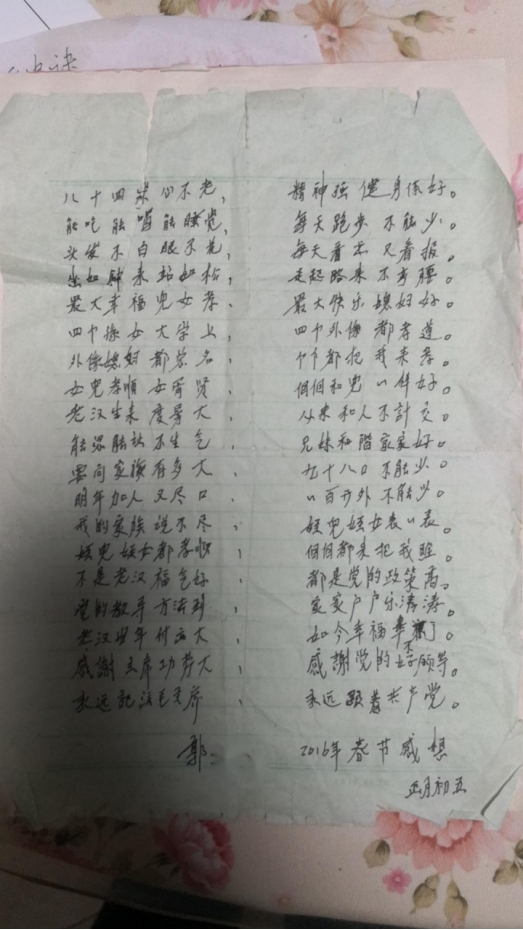 八十四岁心不老， 精神强健身体好。
能吃能喝能睡觉， 每天跑步不能少。
头发不白眼不花， 每天看书又看报。
坐如钟来站如松， 走起路来不弯腰。
最大幸福儿女孝， 最大快乐媳妇好。
四个孫女大学上， 四个外孫都孝道。
外孫媳妇都 名， 个个都把我来孝。
女儿孝順女婿贤， 個個和儿一样好。
老汉生来度量大， 从来和人不計交。
能 能 不生气， 兄妹和諧家家好。
要问家族有多大， 九十八口不能少。
明年加人又尽口， 一百开外不能少。
我的家族说不尽， 侄儿侄女表一表。
侄儿侄女都孝順， 個個都来把我 。
不是老汉福气好， 都是党的政策高。
党的 方法到 家家户户乐涛涛。
老汉当年 大 如今幸福 了。
感謝主席功劳大 感謝党的好领导。
永远記 毛主席 永远跟着共产党。
郭 2016年春节感想
正月初五